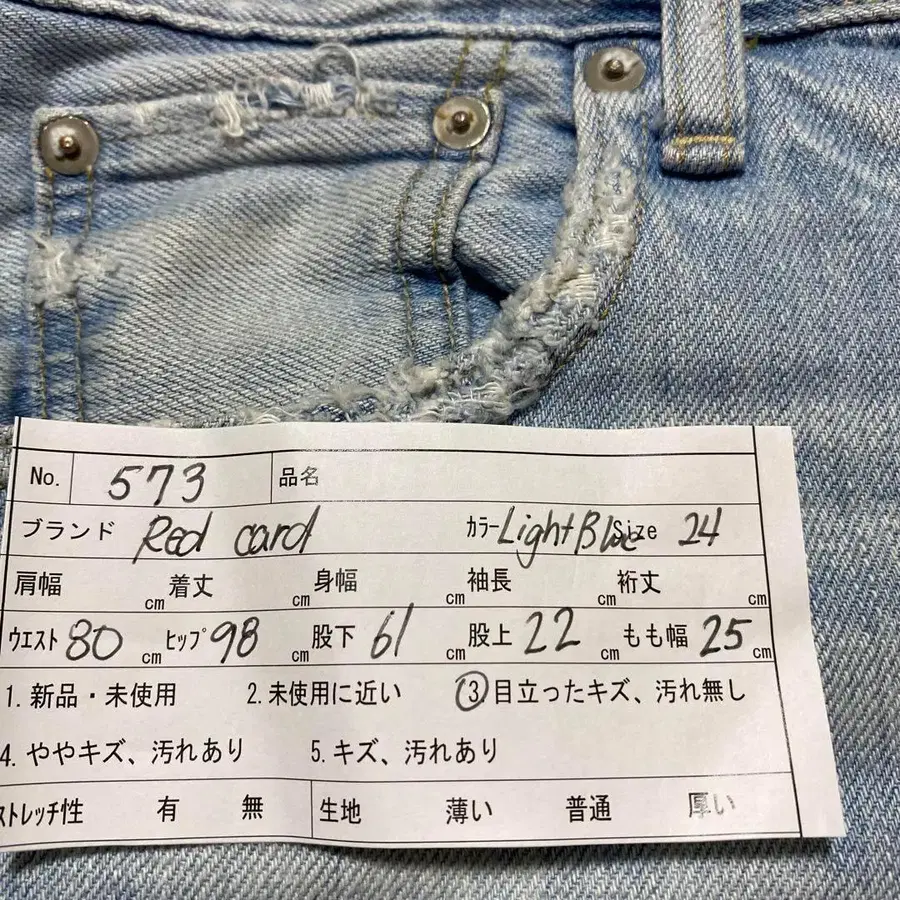 No. 573 品名
ブランド Red card カラー Light Blue Size 24
肩幅 cm 着丈 cm 身幅 cm 袖長 cm 裄丈 cm
ウエスト 80 cm ヒップ 98 cm 股下 61 cm 股上 22 cm もも幅 25 cm
1. 新品・未使用 2. 未使用に近い ③目立ったキズ、汚れ無し
4. ややキズ、汚れあり 5. キズ、汚れあり
ストレッチ性 有 無 生地 薄い 普通 厚い